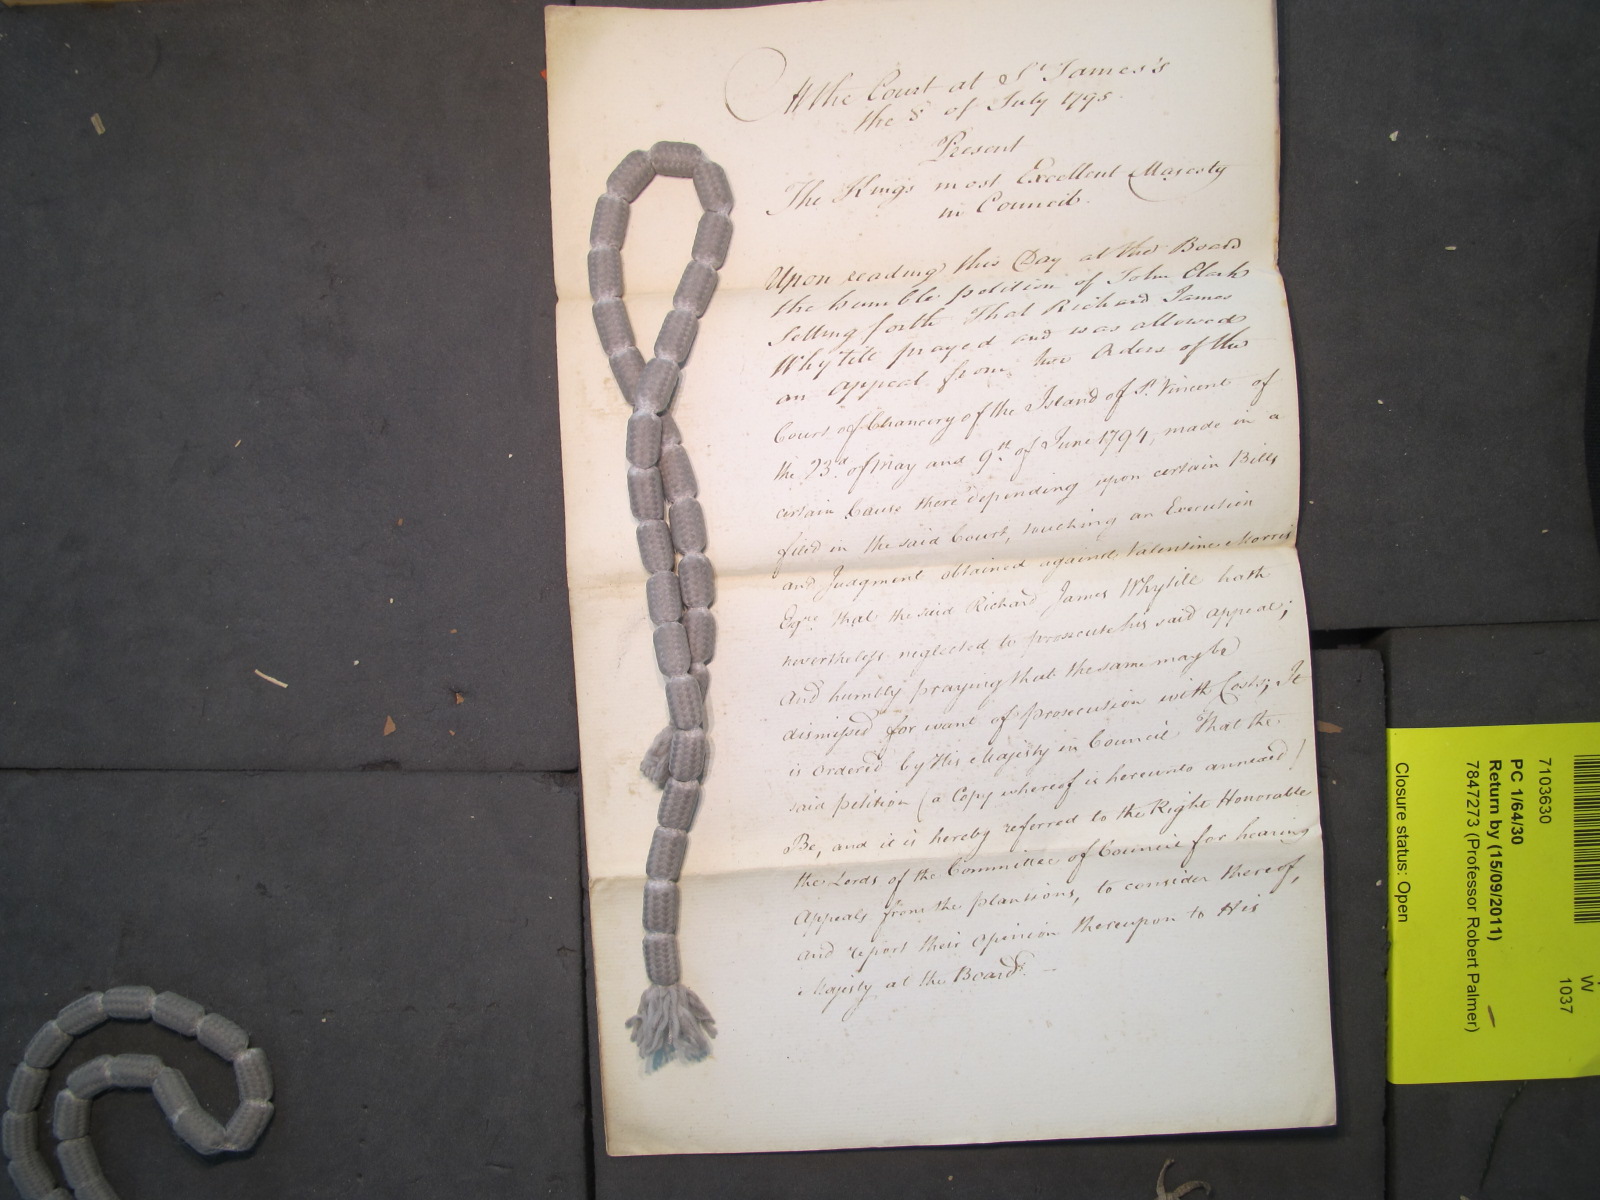 At the Court at St. James's
the 8 of July 1795.
Present
The Kings most Excellent Majesty
in Council.
Upon reading this Day at the Board
the humble petition of John Clark
Setting forth That Richard James
Whytell prayed and was allowed
an appeal from two Orders of the
Court of Chancery of the Island of St. Vincent of
the 23d. of May and 9th of June 1794, made in a
certain Cause there depending upon certain Bills
filed in the said Court, touching an Execution
and Judgment obtained against Valentine Morris
Esqre. that the said Richard James Whytell hath
nevertheless neglected to prosecute his said appeal;
And humbly praying that the same may be
dismissed for want of prosecution with Costs; It
is ordered by His Majesty in Council That the
said petition (a Copy whereof is hereunto annexed)
Be, and it is hereby referred to the Right Honorable
the Lords of the Committee of Council for hearing
Appeals from the plantions, to consider thereof,
and report their opinion thereupon to His
Majesty at the Board. –
W
1037
7103630
PC 1/64/30
Return by (15/09/2011)
7847273 (Professor Robert Palmer)
Closure status: Open